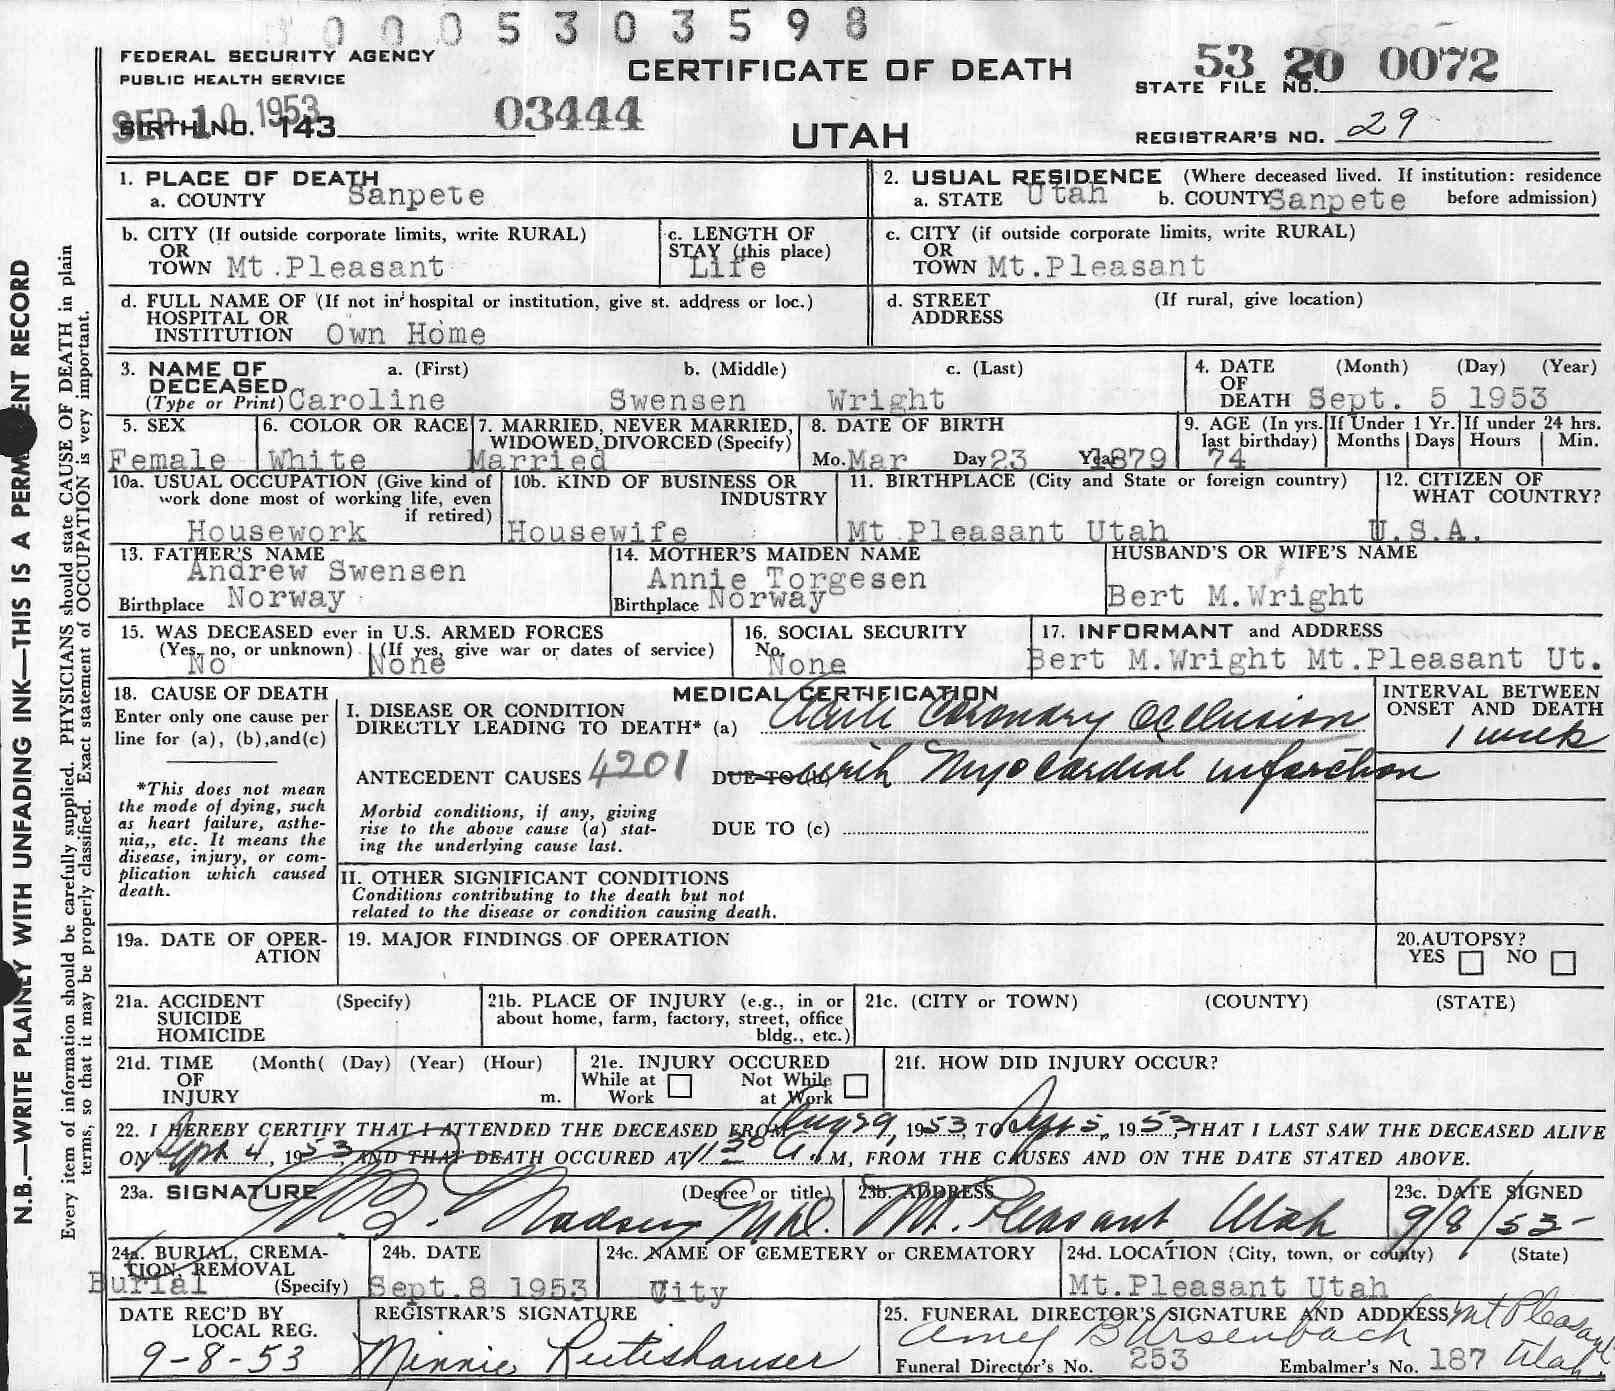 0 0 0 5 3 0 3 5 9 8
FEDERAL SECURITY AGENCY
PUBLIC HEALTH SERVICE
CERTIFICATE OF DEATH
UTAH
53 20 0072
STATE FILE NO.
SEP 10 1953
BIRTH NO. 143
03444
REGISTRAR'S NO. 29
N.B.—WRITE PLAINLY WITH UNFADING INK—THIS IS A PERMANENT RECORD
Every item of information should be carefully supplied. PHYSICIANS should state CAUSE OF DEATH in plain
terms, so that it may be properly classified. Exact statement of OCCUPATION is very important.
1. PLACE OF DEATH
a. COUNTY Sanpete
2. USUAL RESIDENCE (Where deceased lived. If institution: residence
a. STATE Utah b. COUNTY Sanpete before admission)
b. CITY (If outside corporate limits, write RURAL)
OR
TOWN Mt.Pleasant
c. LENGTH OF
STAY (this place)
Life
c. CITY (if outside corporate limits, write RURAL)
OR
TOWN Mt.Pleasant
d. FULL NAME OF (If not in hospital or institution, give st. address or loc.)
HOSPITAL OR
INSTITUTION Own Home
d. STREET (If rural, give location)
ADDRESS
3. NAME OF a. (First) b. (Middle) c. (Last)
DECEASED
(Type or Print) Caroline Swensen Wright
4. DATE (Month) (Day) (Year)
OF
DEATH Sept. 5 1953
5. SEX
Female
6. COLOR OR RACE
White
7. MARRIED, NEVER MARRIED,
WIDOWED, DIVORCED (Specify)
Married
8. DATE OF BIRTH
Mo. Mar Day 23 Year 1879
9. AGE (In yrs. last birthday)
74
If Under 1 Yr.
Months Days
If under 24 hrs.
Hours Min.
10a. USUAL OCCUPATION (Give kind of
work done most of working life, even
if retired)
Housework
10b. KIND OF BUSINESS OR
INDUSTRY
Housewife
11. BIRTHPLACE (City and State or foreign country)
Mt Pleasant Utah
12. CITIZEN OF
WHAT COUNTRY?
U.S.A.
13. FATHER'S NAME
Andrew Swensen
Birthplace Norway
14. MOTHER'S MAIDEN NAME
Annie Torgesen
Birthplace Norway
HUSBAND'S OR WIFE'S NAME
Bert M.Wright
15. WAS DECEASED ever in U.S. ARMED FORCES
(Yes, no, or unknown) (If yes, give war or dates of service)
No None
16. SOCIAL SECURITY
No.
None
17. INFORMANT and ADDRESS
Bert M.Wright Mt.Pleasant Ut.
18. CAUSE OF DEATH
Enter only one cause per
line for (a), (b),and(c)
*This does not mean
the mode of dying, such
as heart failure, asthe-
nia,, etc. It means the
disease, injury, or com-
plication which caused
death.
MEDICAL CERTIFICATION
I. DISEASE OR CONDITION
DIRECTLY LEADING TO DEATH* (a) Acute Coronary Occlusion
INTERVAL BETWEEN
ONSET AND DEATH
1 week
ANTECEDENT CAUSES 4201 DUE TO (b) with Myocardial infarction
Morbid conditions, if any, giving
rise to the above cause (a) stat-
ing the underlying cause last.
DUE TO (c)
II. OTHER SIGNIFICANT CONDITIONS
Conditions contributing to the death but not
related to the disease or condition causing death.
19a. DATE OF OPER-
ATION
19. MAJOR FINDINGS OF OPERATION
20.AUTOPSY?
YES NO
21a. ACCIDENT (Specify)
SUICIDE
HOMICIDE
21b. PLACE OF INJURY (e.g., in or
about home, farm, factory, street, office
bldg., etc.)
21c. (CITY or TOWN) (COUNTY) (STATE)
21d. TIME (Month( (Day) (Year) (Hour)
OF
INJURY m.
21e. INJURY OCCURED
While at Work Not While at Work
21f. HOW DID INJURY OCCUR?
22. I HEREBY CERTIFY THAT I ATTENDED THE DECEASED FROM Aug 29, 1953, TO Sept 5, 1953, THAT I LAST SAW THE DECEASED ALIVE
ON Sept 4, 1953, AND THAT DEATH OCCURED AT 11:30 A.M, FROM THE CAUSES AND ON THE DATE STATED ABOVE.
23a. SIGNATURE (Degree or title)
Madsen M.D.
23b. ADDRESS
Mt. Pleasant, Utah
23c. DATE SIGNED
9/8/53
24a. BURIAL, CREMA-
TION, REMOVAL
(Specify)
Burial
24b. DATE
Sept.8 1953
24c. NAME OF CEMETERY or CREMATORY
City
24d. LOCATION (City, town, or county) (State)
Mt.Pleasant Utah
DATE REC'D BY
LOCAL REG.
9-8-53
REGISTRAR'S SIGNATURE
Minnie Rutishauser
25. FUNERAL DIRECTOR'S SIGNATURE AND ADDRESS Mt Pleasant
Ursenbach Utah.
Funeral Director's No. 253 Embalmer's No. 187